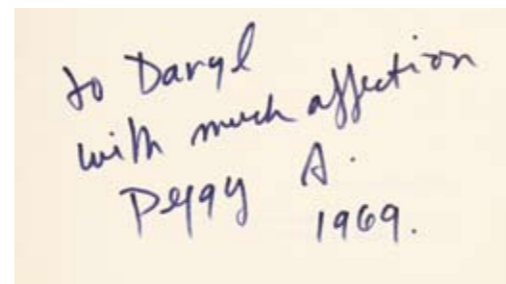 to Daryl
with much affection
Peggy A.
1969.